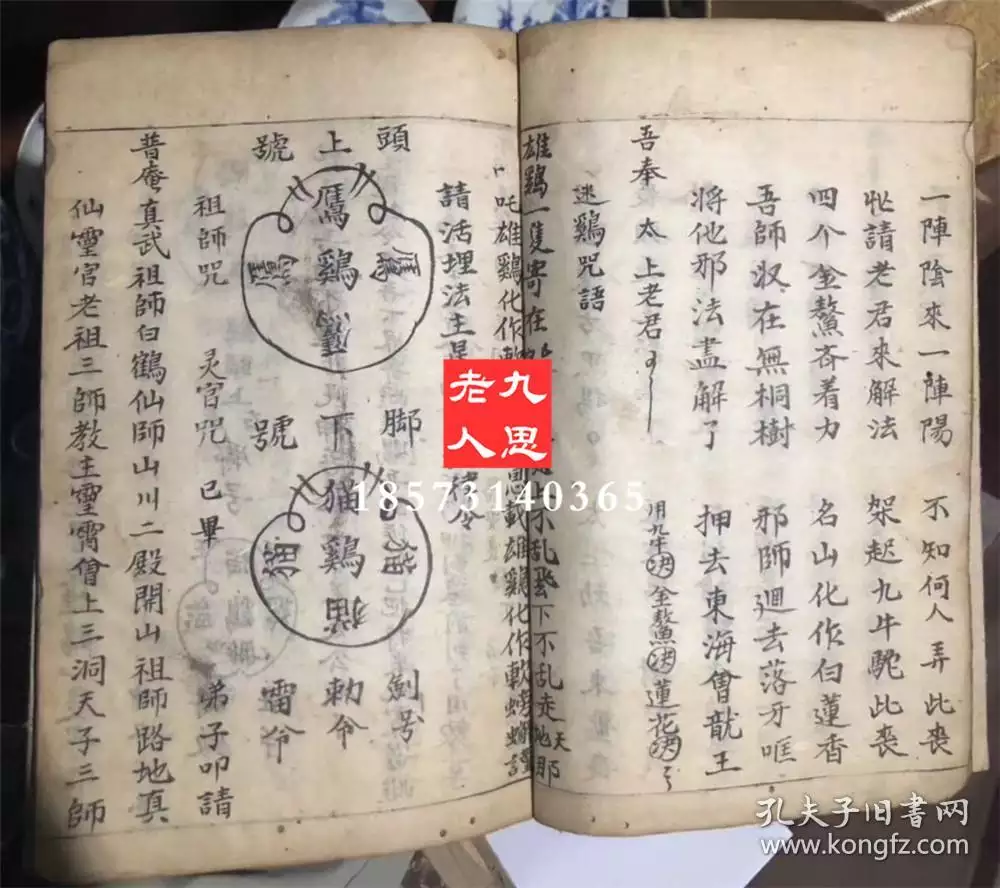 一陣陰來一陣陽　不知何人弄此丧
妣請老君來解法　架起九牛駝此丧
四个金鰲吝着力　名山化作白蓮香
吾師収在無桐樹　邪師廻去落牙哐
將他邪法盡解了　押去東海會龍王
吾奉太上老君　用九牛决金鰲决蓮花决
迷鷄咒語
雄鷄一隻寄在　不乱飛下不乱走地那天
吒雄鷄化作軟　載雄鷄化作軟
請活埋法主　令
頭上號
鷹鷄
鷹
鷹
脚下號
猫鷄猫
猫
猫
劍号
勅令
雷令
祖師咒　灵官咒　已畢　弟子叩請
普庵真武祖師白鶴仙師山川二殿開山祖師路地真
仙靈官老祖三師教主靈霄會上三洞天子三師
九思
老人
18573140365
孔夫子旧书网
www.kongfz.com